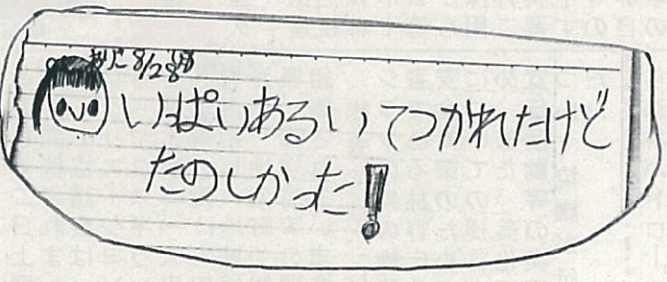 8/28
いっぱいあるいてつかれたけど
たのしかった!